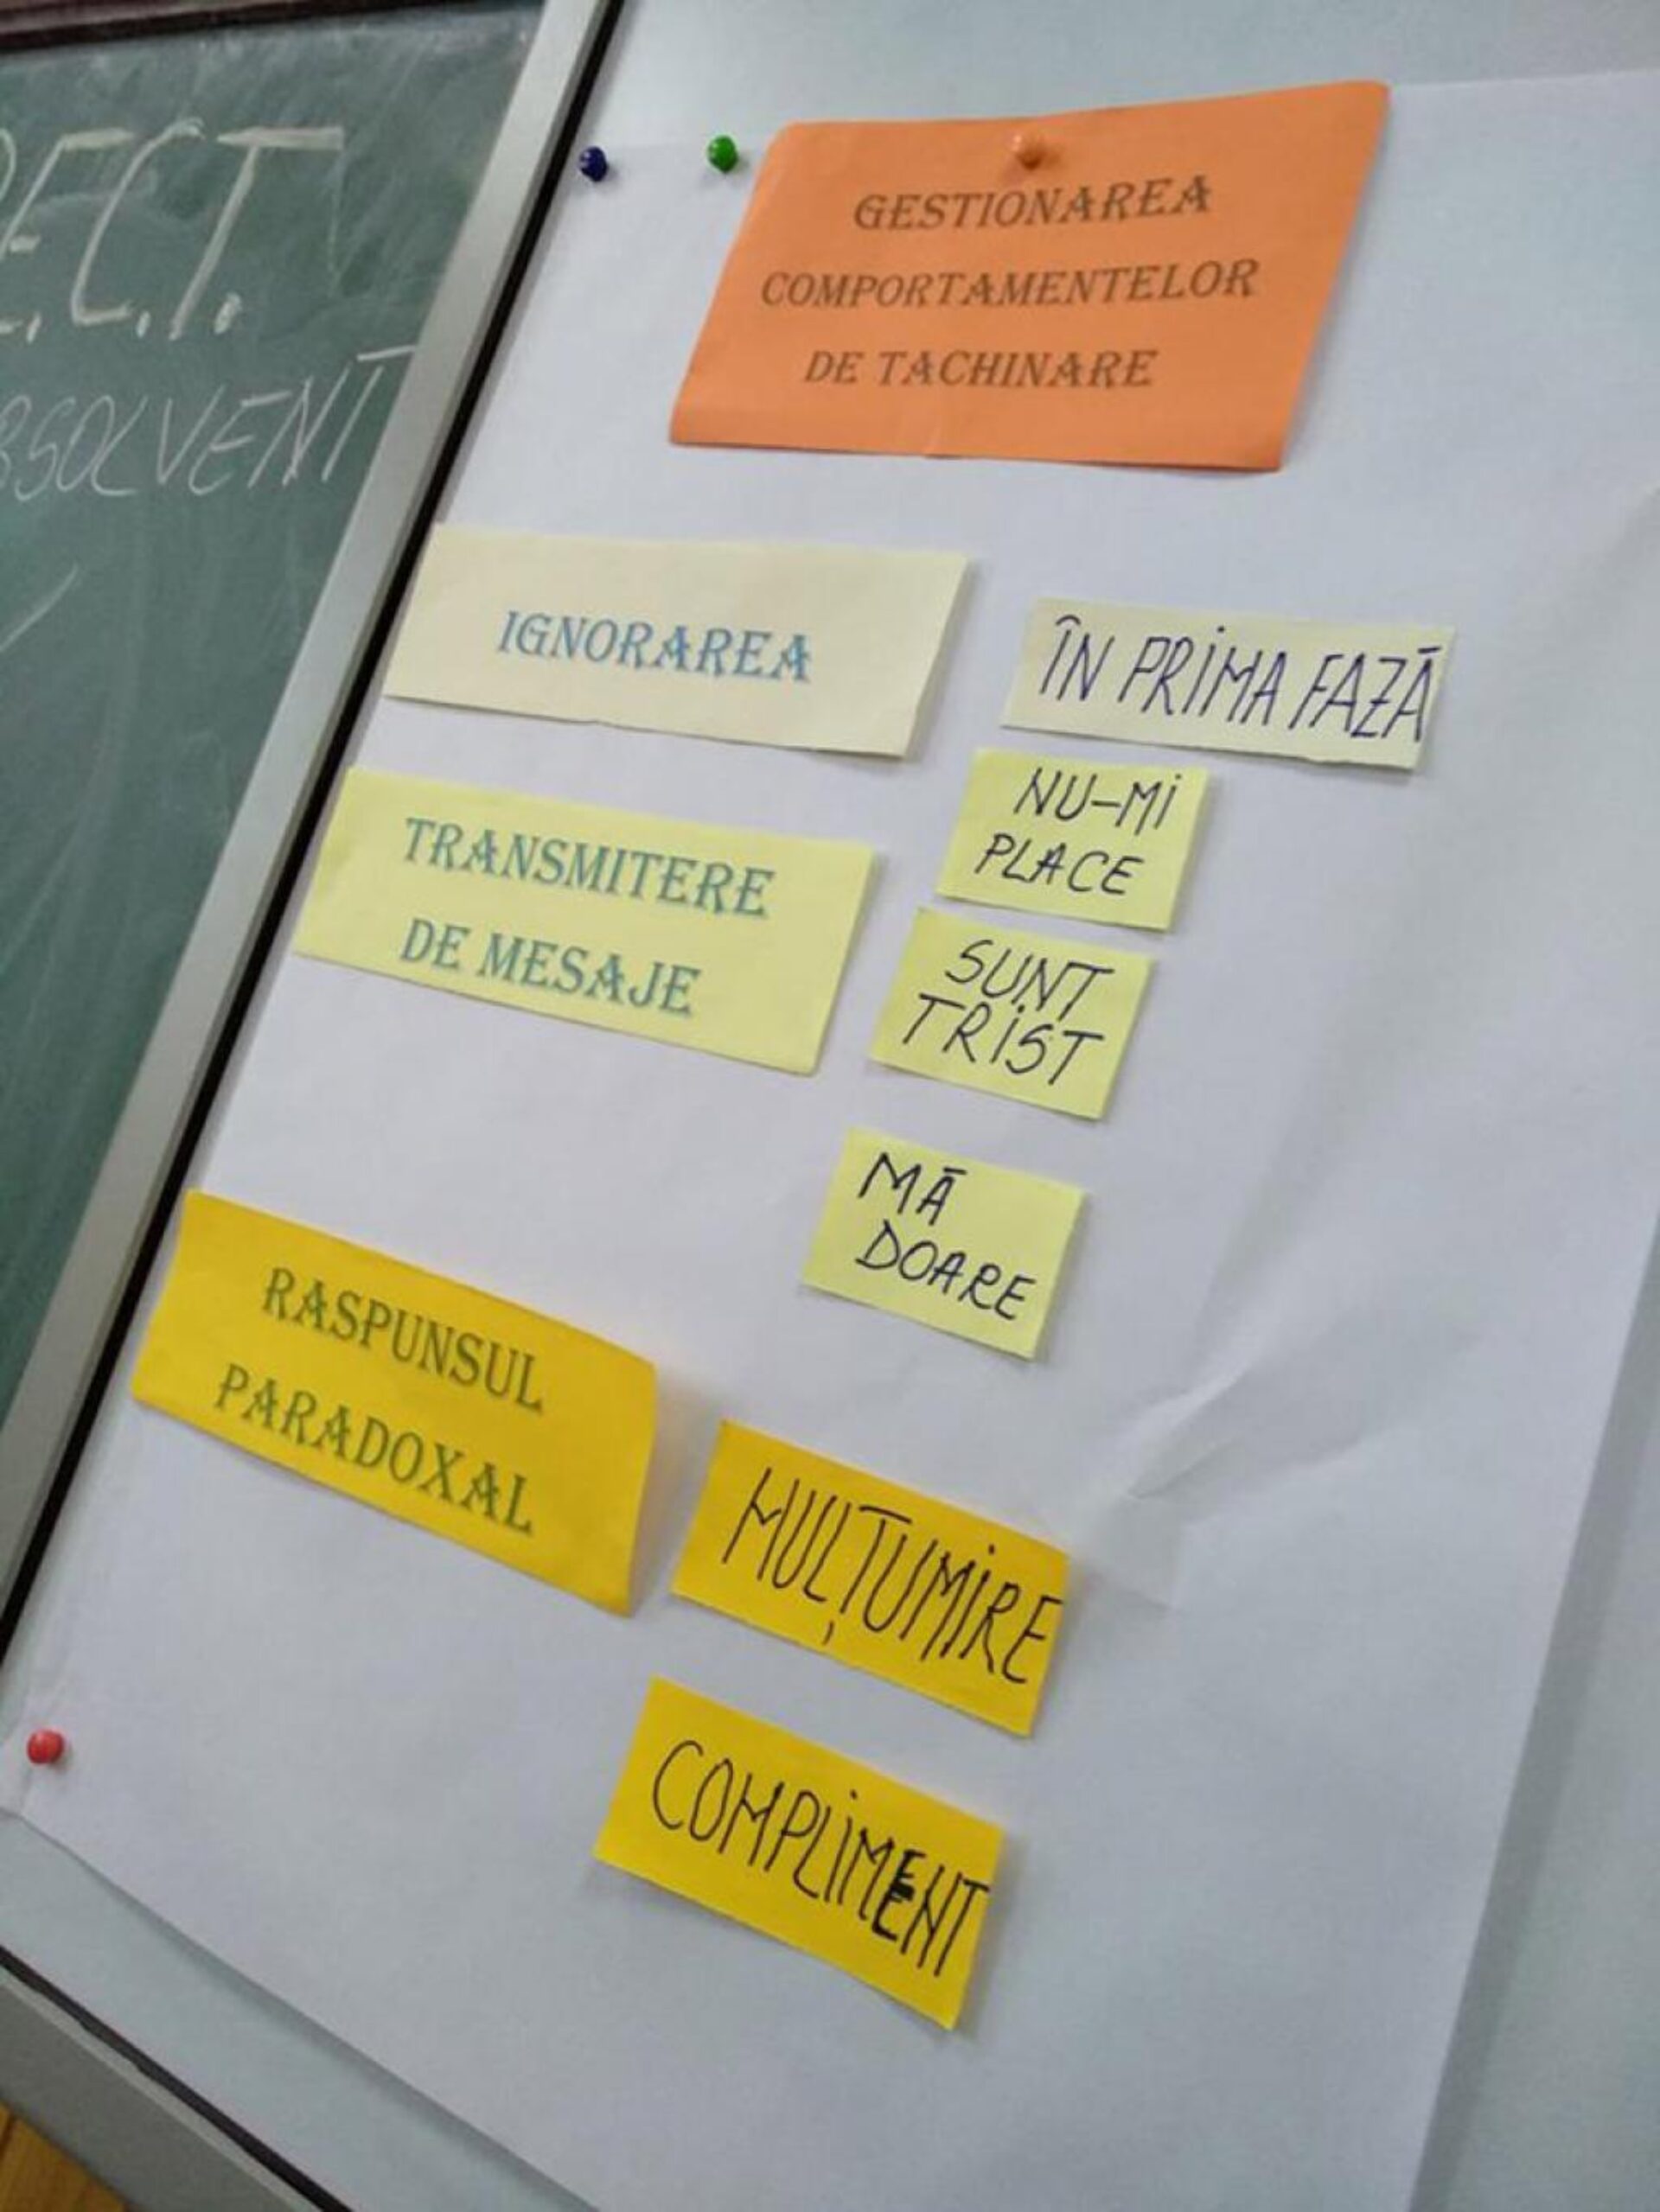 GESTIONAREA
COMPORTAMENTELOR
DE TACHINARE
IGNORAREA
ÎN PRIMA FAZĂ
TRANSMITERE
DE MESAJE
NU-MI
PLACE
SUNT
TRIST
MĂ
DOARE
RASPUNSUL
PARADOXAL
MULȚUMIRE
COMPLIMENT